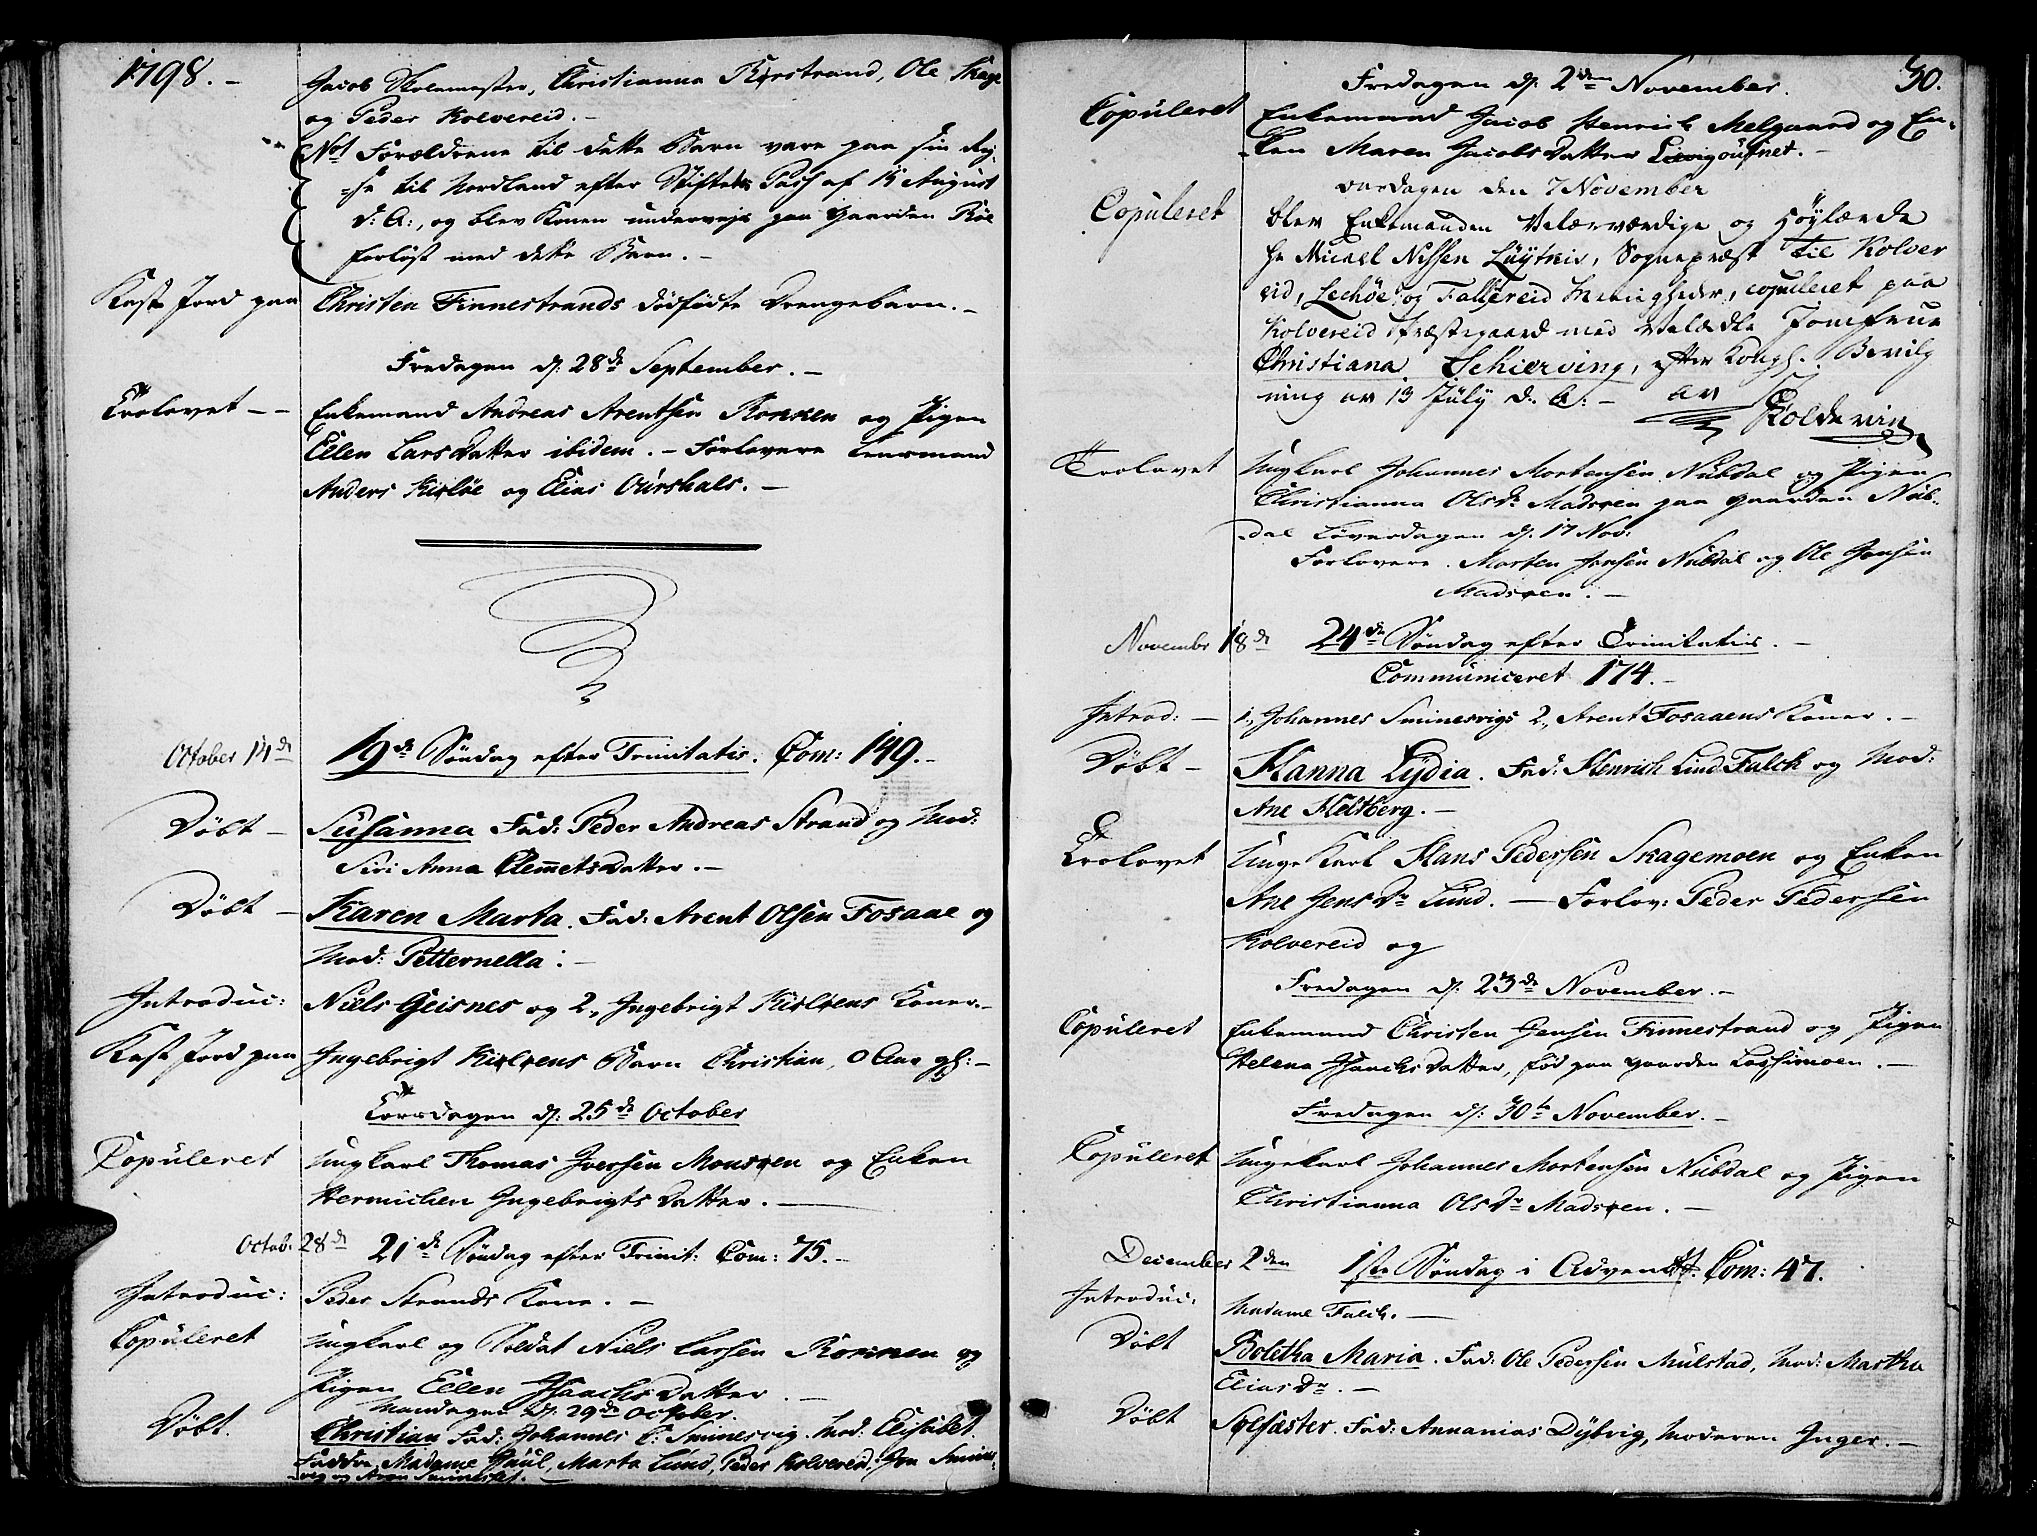 1798. -
Jacob Skolemester, Christianna Korstrand, Ole Skage
og Peder Kolvereid. -
Not Forældrene til dette Barn vare paa sin Rej-
-se til Nordland efter Stiftets Pass af 15 August
d: A:, og blev Konen undervejs paa Gaarden Röe
forløst med dette Barn. -
Kast Jord paa Christen Finnestrands dødfødte Drengebarn. -
Fredagen d: 28de September. -
Trolovet - - Enkemand Andreas Arentsen Ronnen og Pigen
Ellen LarsDatter ibidem. - Forlovere Lensmand
Anders Kirköe og Elias Ourshals. -
October 14de 19de Søndag efter Trinitatis. Com: 149. -
Døbt - Susanna Fad: Peder Andreas Strand og Mod:
Siri Anna ClemmetsDatter. -
Døbt - Karen Marta. Fad: Arent Olsen Fosaae og
Mod: Petternella: -
Introduc: Niels Geisnes og 2, Ingebrigt Koner. -
Kast Jord paa Ingebrigt Barn Christian, 0 Aar gl: -
Torsdagen d: 25de October
Copuleret Ungkarl Thomas Iversen og Enken
Hermichen IngebrigtsDatter. -
Octob. 28de 21de Søndag efter Trinit: Com: 75. -
Introduc: Peder Strands Kone. -
Copuleret Ungkarl og Soldat Niels Larsen Ronnen og
Pigen Ellen IsaachsDatter. -
Mandagen d: 29de October.
Døbt. Christian Fad: Johannes C: Sminesvig. Mod: Elisabet.
Faddre, Madame Juul, Marta Lund, Peder Kolvereid, Jon Smines-
vig og Aron Sminesvet.
30.
Fredagen d: 2den November.
Copuleret Enkemand Jacob Henrich Melgaard og En-
-ken Maren JacobsDatter
Onsdagen den 7 November
Copuleret blev Enkemanden Velærværdige og Høylærde
Hr Micael Nissen Lüytkis, Sognepræst til Kolver
eid, Lechöe og Fallereid Menigheder, copulleret paa
Kolvereid Præstegaard med Velædle Jomfrue
Christiana Schierving, efter Kongl. Bevilg
ning av 13 July d. A: - av Koldevin
Trolovet Ungkarl Johannes Mortensen Nubdal og Pigen
Christianna OlsDr Madsøen paa Gaarden Nub-
-dal Løverdagen d: 17 Nov:
Forlovere. Morten Jensen Nubdal og Ole Jensen
Madsøen. -
November 18de 24de Søndag efter Trinitatis. -
Communiceret 174. -
Introd: - 1, Johannes Sminesvigs 2, Arent Fosaaens Koner. -
Døbt - Hanna Lydia. Fad: Henrich Lind Falck og Mod:
Ane Heltberg. -
Trolovet UngeKarl Hans Pedersen Skagemoen og Enken
Ane JensDr Lund. - Forlov: Peder Pedersen
Kolvereid og
Fredagen d: 23de November. -
Copuleret Enkemand Christen Jensen Finnestrand og Pigen
Helena IsaachsDatter, fød paa Gaarden Lassemoen. -
Fredagen d: 30te November. -
Copuleret Ungekarl Johannes Mortensen Nubdal og Pigen
Christianna OlsDr Madsøen. -
December 2den 1ste Søndag i Advent. Com: 47.
Introduc. Madame Falch. -
Døbt Boletha Maria. Fad: Ole Pedersen Mulstad, Mod: Martha
EliasDr. -
Døbt Sølfæster. Fad: Annanias Dybvig, Moderen Inger. -